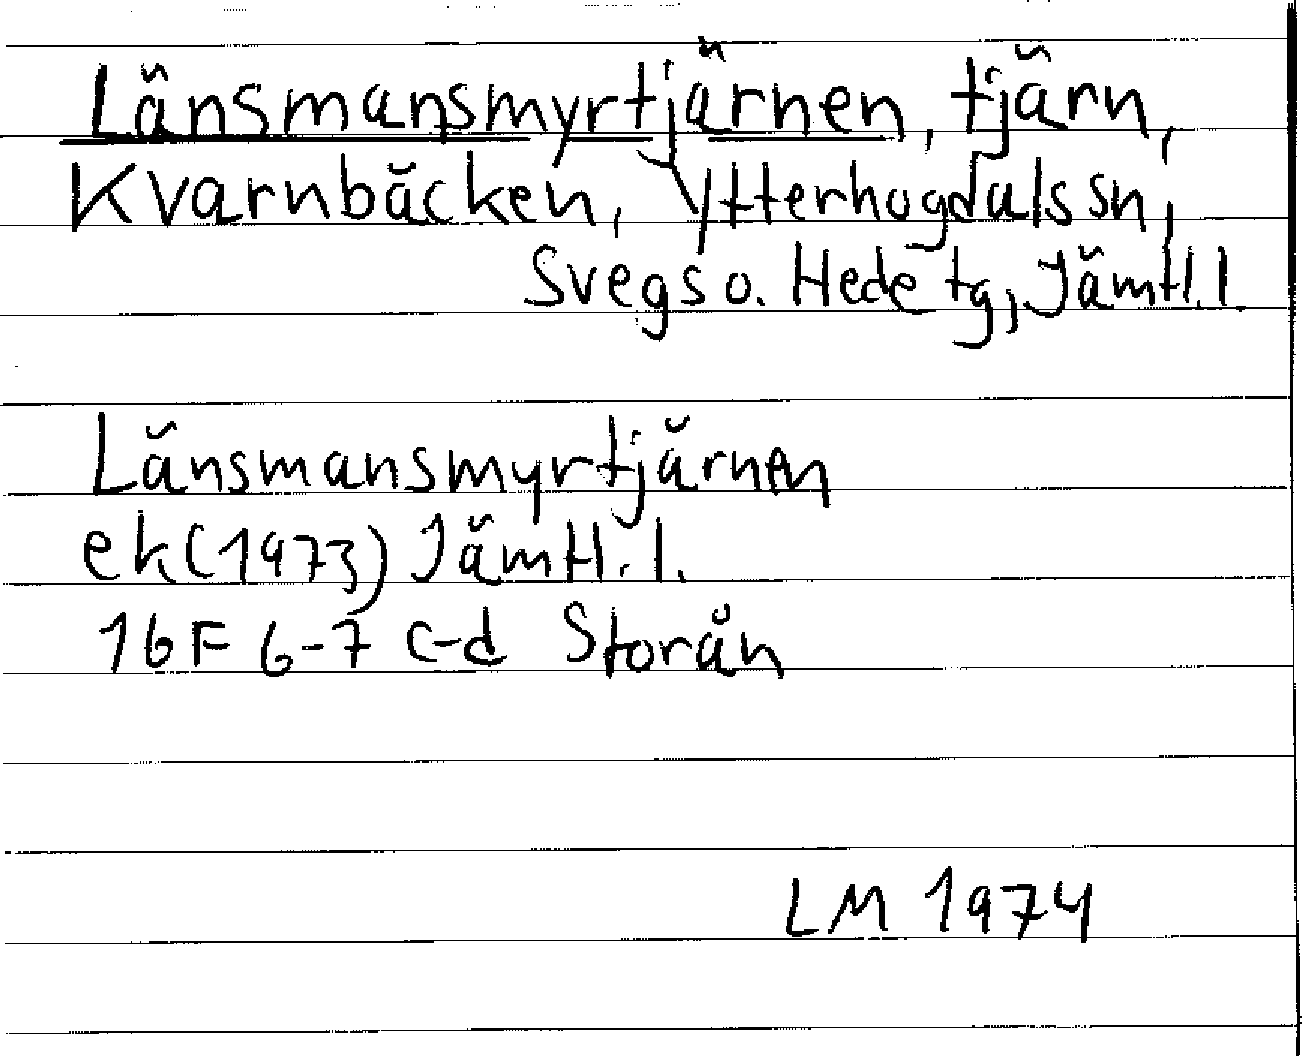 Länsmansmyrtjärnen, tjärn,
Kvarnbäcken, Ytterhogdals sn,
Svegs o. Hede tg, Jämtl. l.
Länsmansmyrtjärnen
ek (1973) Jämtl. l.
16F 6-7 c-d Storån
LM 1974